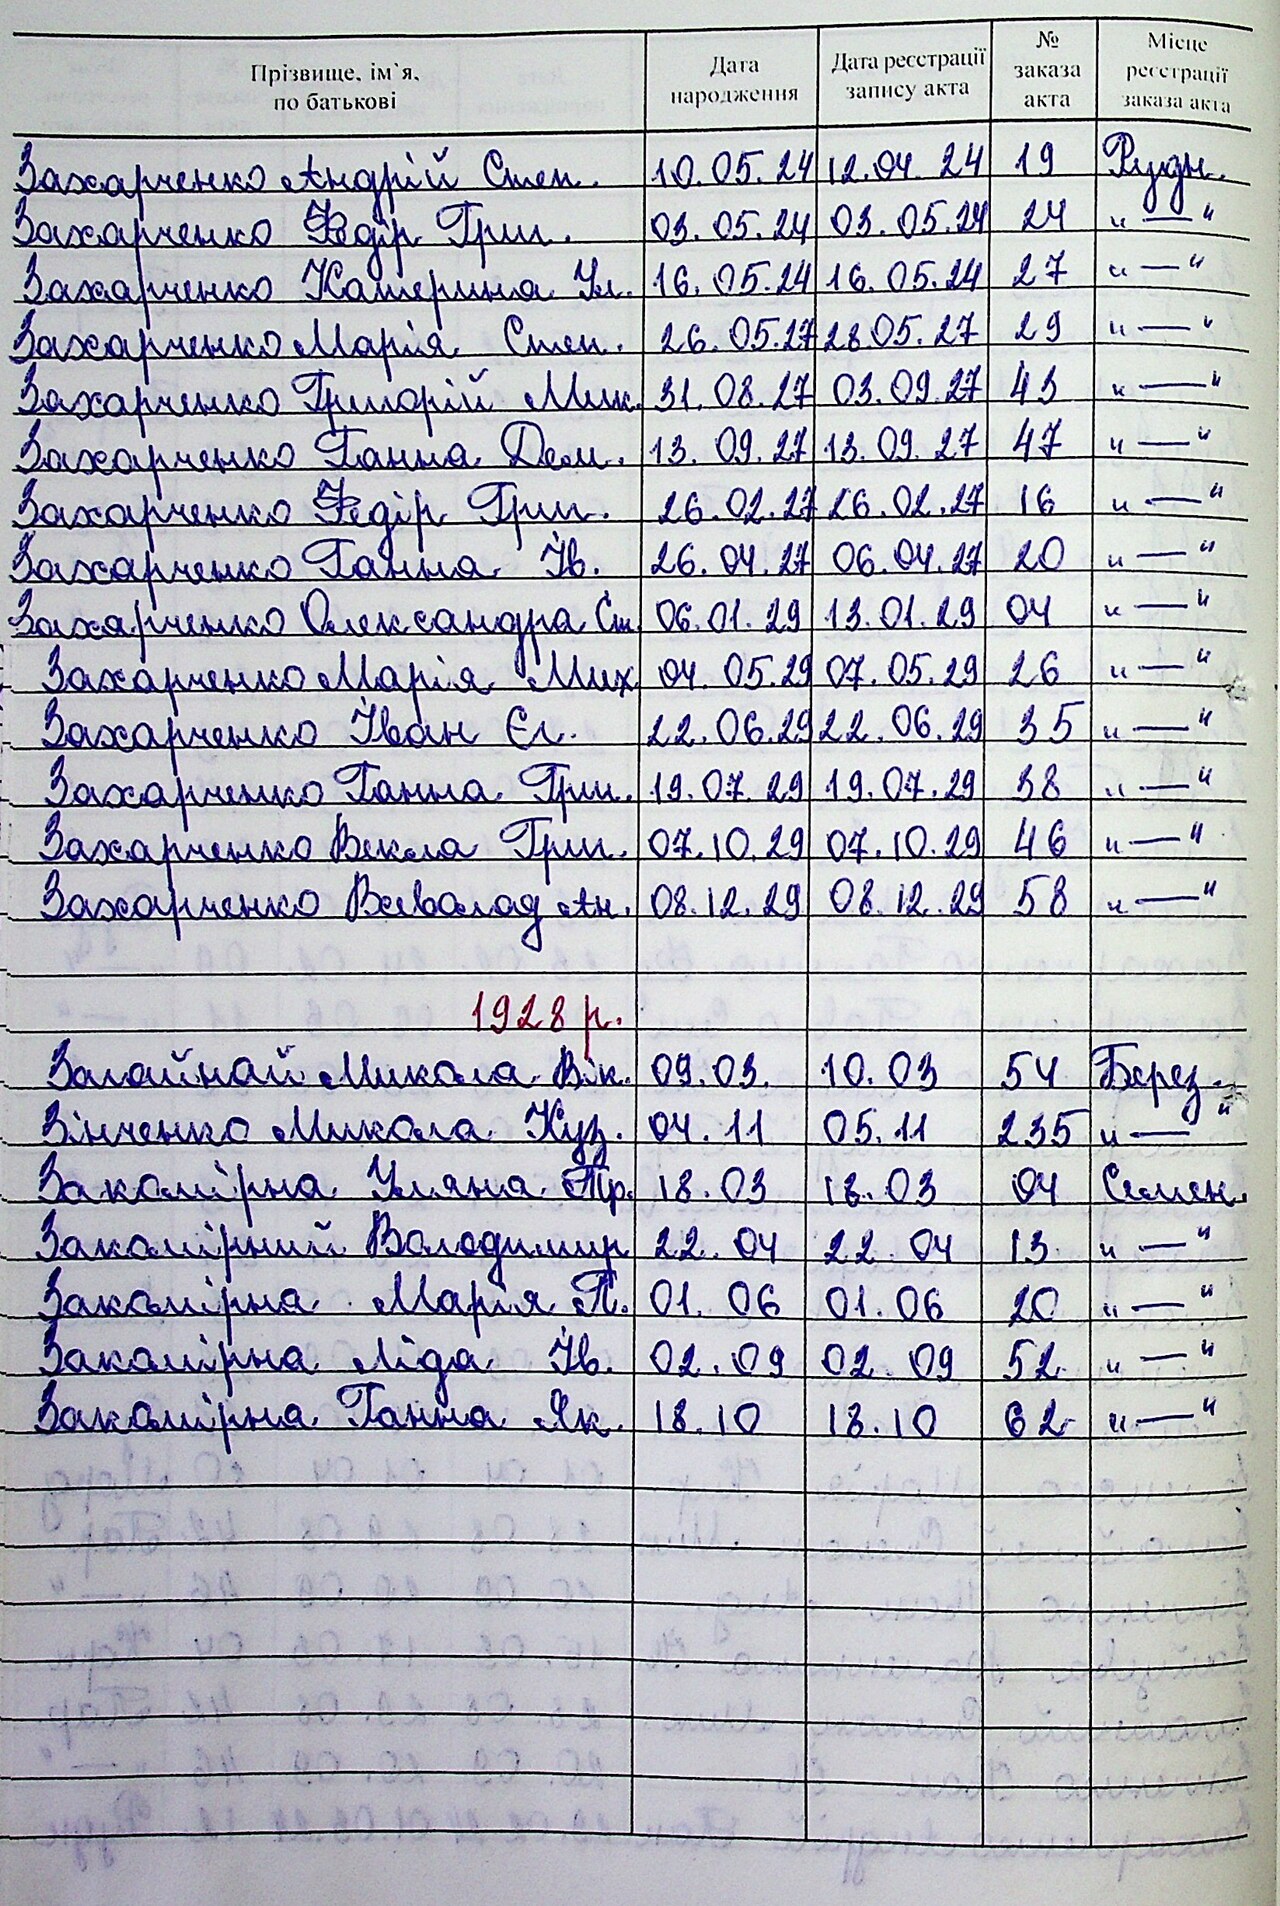 Прізвище, ім`я, по батькові Дата народження Дата реєстрації запису акта № заказа акта Місце реєстрації заказа акта
Захарченко Андрій Степ. 10.05.24 12.04.24 19 Рудн.
Захарченко Федір Григ. 03.05.24 03.05.24 24 "—"
Захарченко Катерина Ул. 16.05.24 16.05.24 27 "—"
Захарченко Марія Степ. 26.05.27 28.05.27 29 "—"
Захарченко Григорій Мик. 31.08.27 03.09.27 43 "—"
Захарченко Ганна Дем. 13.09.27 13.09.27 47 "—"
Захарченко Федір Григ. 26.02.27 26.02.27 16 "—"
Захарченко Ганна Ів. 26.04.27 06.04.27 20 "—"
Захарченко Олександра Ст. 06.01.29 13.01.29 04 "—"
Захарченко Марія Мих 04.05.29 07.05.29 26 "—"
Захарченко Іван Єг. 22.06.29 22.06.29 35 "—"
Захарченко Ганна Григ. 19.07.29 19.07.29 38 "—"
Захарченко Векла Григ. 07.10.29 07.10.29 46 "—"
Захарченко Всеволод Ан. 08.12.29 08.12.29 58 "—"
1928 р.
Микола Вік. 09.03. 10.03 54 Берез.
Зінченко Микола Куз. 04.11 05.11 235 "—"
Закомірна Уляна Пр. 18.03 18.03 04 Семен.
Закомірний Володимир 22.04 22.04 13 "—"
Закомірна Марія П. 01.06 01.06 20 "—"
Закомірна Ліда Ів. 02.09 02.09 52 "—"
Закомірна Ганна Як. 18.10 18.10 62 "—"